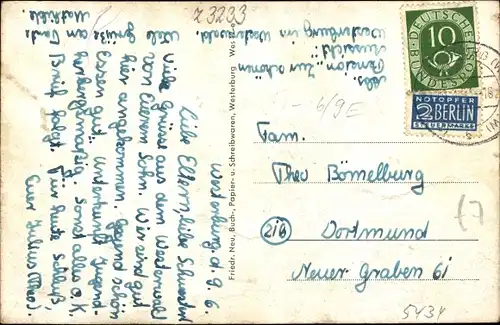 z 3233
Abs.
Pension "Zur schönen
Aussicht"
Westerburg im Westerwald.
Westerburg d. 9. 6.
Liebe Eltern, liebe Schwester
Viele Grüsse aus dem Westerwald
von Eurem Sohn. Wir sind gut
hier angekommen, Gegend schön
Essen gut, Unterkunft Jugend-
herbergsmäßig. Sonst alles o.K.
Brief folgt. Für heute Schluß,
Euer Julius (Theo).
Viele Grüße
an Tante
Mathilde
Friedr. Neu, Buch-, Papier- u. Schreibwaren, Westerburg Wes
DEUTSCHE
BUNDESPOST
10
NOTOPFER
2 BERLIN
STEUERMARKE
6/9E
Fam.
Theo Bömelburg
21b Dortmund
Neuer Graben 61
[7
5434